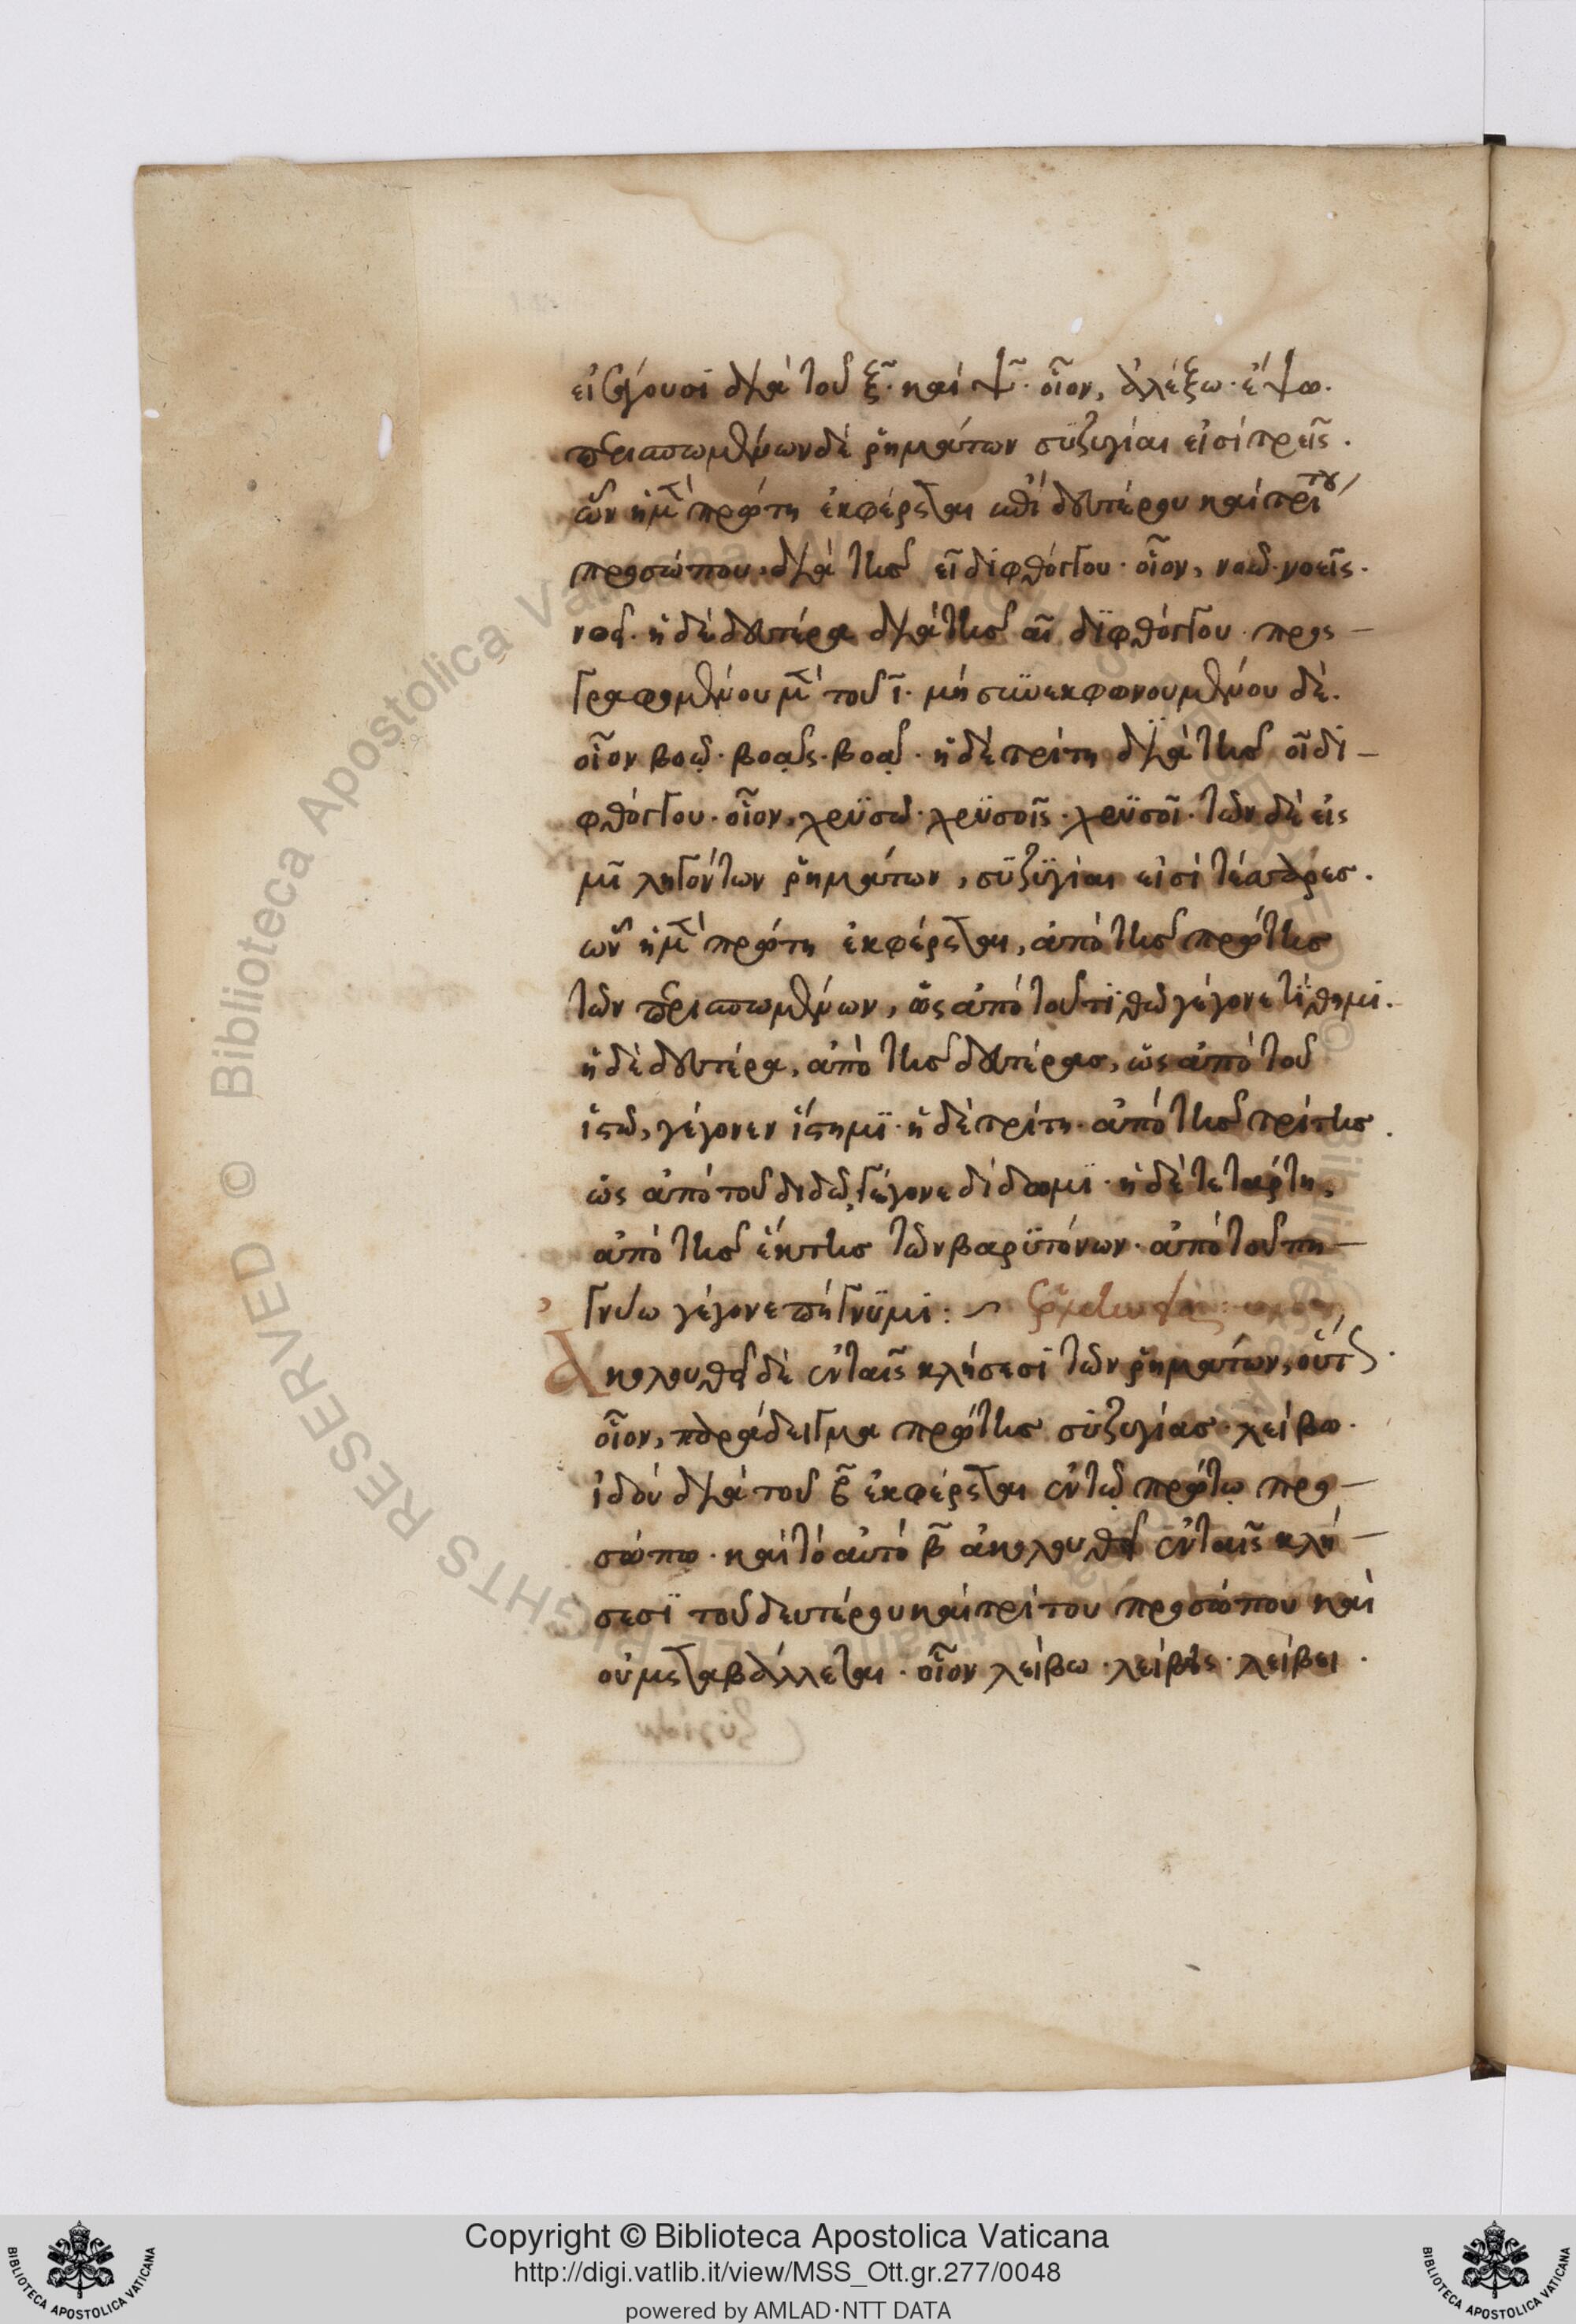 εἰσάγουσι διὰ τοῦ ξ̃· καὶ ψ̃· οἷον, ἀλέξω· ἕψω·
περισπωμένων δὲ ῥημάτων συζυγίαι εἰσὶ τρεῖς·
ὧν ἡ μὲν πρώτη ἐκφέρεται ἐπὶ δευτέρου καὶ τρίτου
προσώπου διὰ τῆς ει διφθόγγου· οἷον, νοῶ· νοεῖς·
νοεῖ· ἡ δὲ δευτέρα διὰ τῆς αι διφθόγγου προς-
γραφομένου μὲν τοῦ ι· μὴ συνεκφωνουμένου δέ·
οἷον βοῶ· βοᾷς· βοᾷ· ἡ δὲ τρίτη διὰ τῆς οι δι-
φθόγγου· οἷον, χρυσῶ· χρυσοῖς· χρυσοῖ· τῶν δὲ εἰς
μι ληγόντων ῥημάτων, συζυγίαι εἰσὶ τέσσαρες·
ὧν ἡ μὲν πρώτη ἐκφέρεται, ἀπὸ τῆς πρώτης
τῶν περισπωμένων, ὡς ἀπὸ τοῦ τιθῶ γέγονε τίθημι·
ἡ δὲ δευτέρα, ἀπὸ τῆς δευτέρας, ὡς ἀπὸ τοῦ
ἱστῶ, γέγονεν ἵστημι· ἡ δὲ τρίτη ἀπὸ τῆς τρίτης·
ὡς ἀπὸ τοῦ διδῶ, γέγονε δίδωμι· ἡ δὲ τετάρτη,
ἀπὸ τῆς ἕκτης τῶν βαρυτόνων· ἀπὸ τοῦ πη-
γνύω γέγονε πήγνυμι:
ἀκολουθεῖ δὲ ἐν ταῖς κλήσεσι τῶν ῥημάτων, οὕτως·
οἷον, παράδειγμα πρώτης συζυγίας· λείβω·
ἰδοὺ διὰ τοῦ β̃ ἐκφέρεται ἐν τῷ πρώτῳ προ-
σώπῳ· καὶ τὸ αὐτὸ β̃ ἀκολουθεῖ ἐν ταῖς κλή-
σεσι τοῦ δευτέρου καὶ τρίτου προσώπου καὶ
οὐ μεταβάλλεται· οἷον λείβω· λείβεις· λείβει·
© Biblioteca Apostolica Vaticana
ALL RIGHTS RESERVED
Copyright © Biblioteca Apostolica Vaticana
http://digi.vatlib.it/view/MSS_Ott.gr.277/0048
powered by AMLAD·NTT DATA
BIBLIOTECA APOSTOLICA VATICANA
BIBLIOTECA APOSTOLICA VATICANA